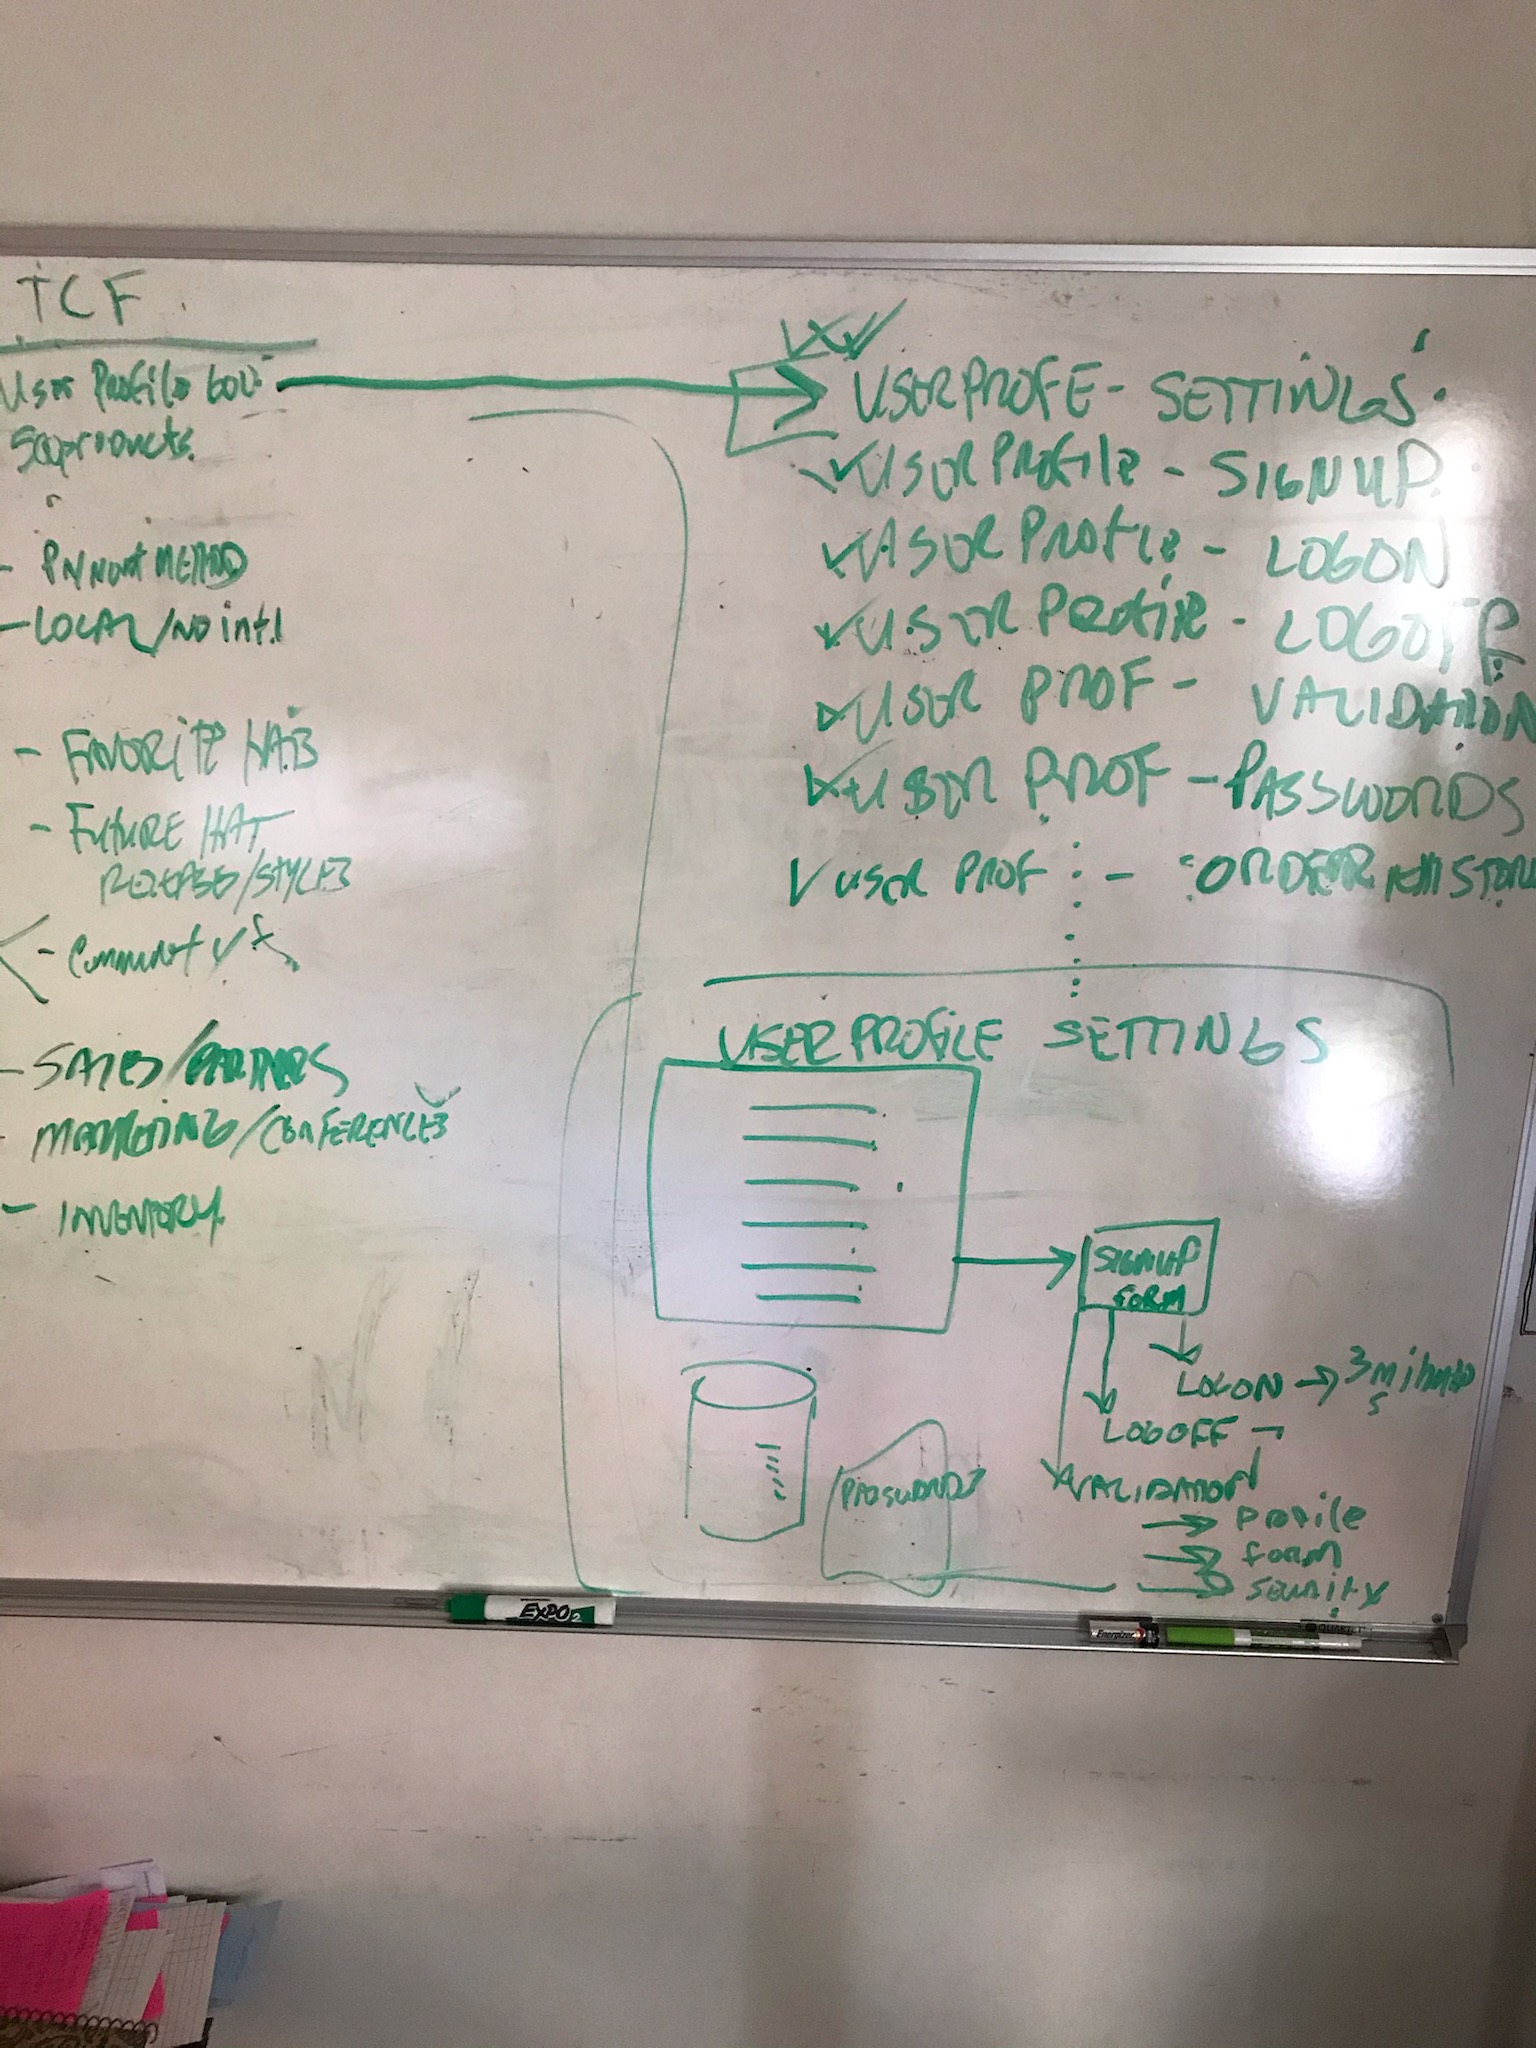 TCF
User Profile 600
500 products.
- PAYMENT METHOD
- LOCAL/NO int.l
- FAVORITE HATS
- FUTURE HAT
RELEASES/STYLES
- Community
- SALES/PARTNERS
- MARKETING/CONFERENCES
- INVENTORY
USER PROFE - SETTINGS
USER PROFILE - SIGNUP
USER PROFILE - LOGON
USER PROFILE - LOGOFF
USER PROF - VALIDATION
USER PROF - PASSWORDS
USER PROF - ORDER HISTORY
USER PROFILE SETTINGS
SIGNUP
FORM
LOGON → 3 minutes
LOGOFF
VALIDATION
PASSWORDS
→ Profile
→ form
→ Security
EXPO 2
Energizer
QUARTET